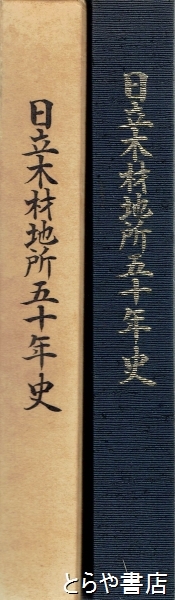 日立木材地所五十年史
日立木材地所五十年史
とらや書店